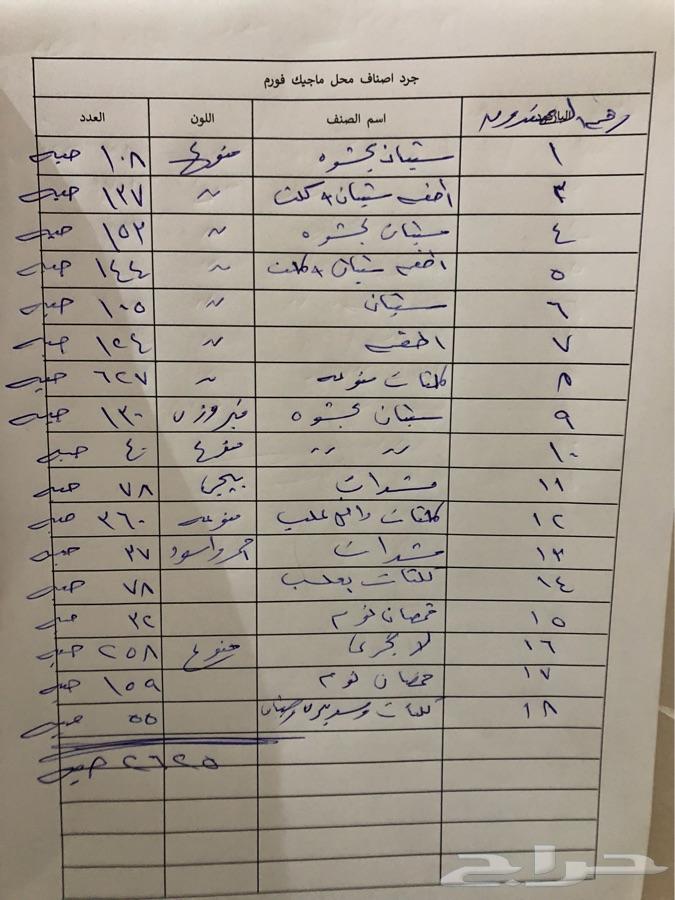 جرد اصناف محل ماجيك فورم
رقم اسم الصنف اللون العدد
١ ستيان بحشوه منوع ١٠٨ حبه
٣ اطقم ستيان + كلت ~ ١٣٧ حبه
٤ ستيان بحشوه ~ ١٥٣ حبه
٥ اطقم ستيان + كلت ~ ١٤٤ حبه
٦ ستيان ~ ١٠٥ حبه
٧ اطقم ~ حبه
٨ كلتات منوعه ~ ٦٢٧ حبه
٩ ستيان بحشوه فيروزي ١٣٠ حبه
١٠ ~ ~ منوع ٤٠ حبه
١١ مشدات بيجي ٧٨ حبه
١٢ كلتات علب منوعه ٣٦٠ حبه
١٣ مشدات احمر واسود ٣٧ حبه
١٤ كلتات بعلب ٧٨ حبه
١٥ قمصان نوم ٣٢ حبه
١٦ لا نجري منوع ٢٥٨ حبه
١٧ قمصان نوم ١٥٩ حبه
١٨ كلتات ٥٥ حبه
٢٦٢٥ حبه
حراج